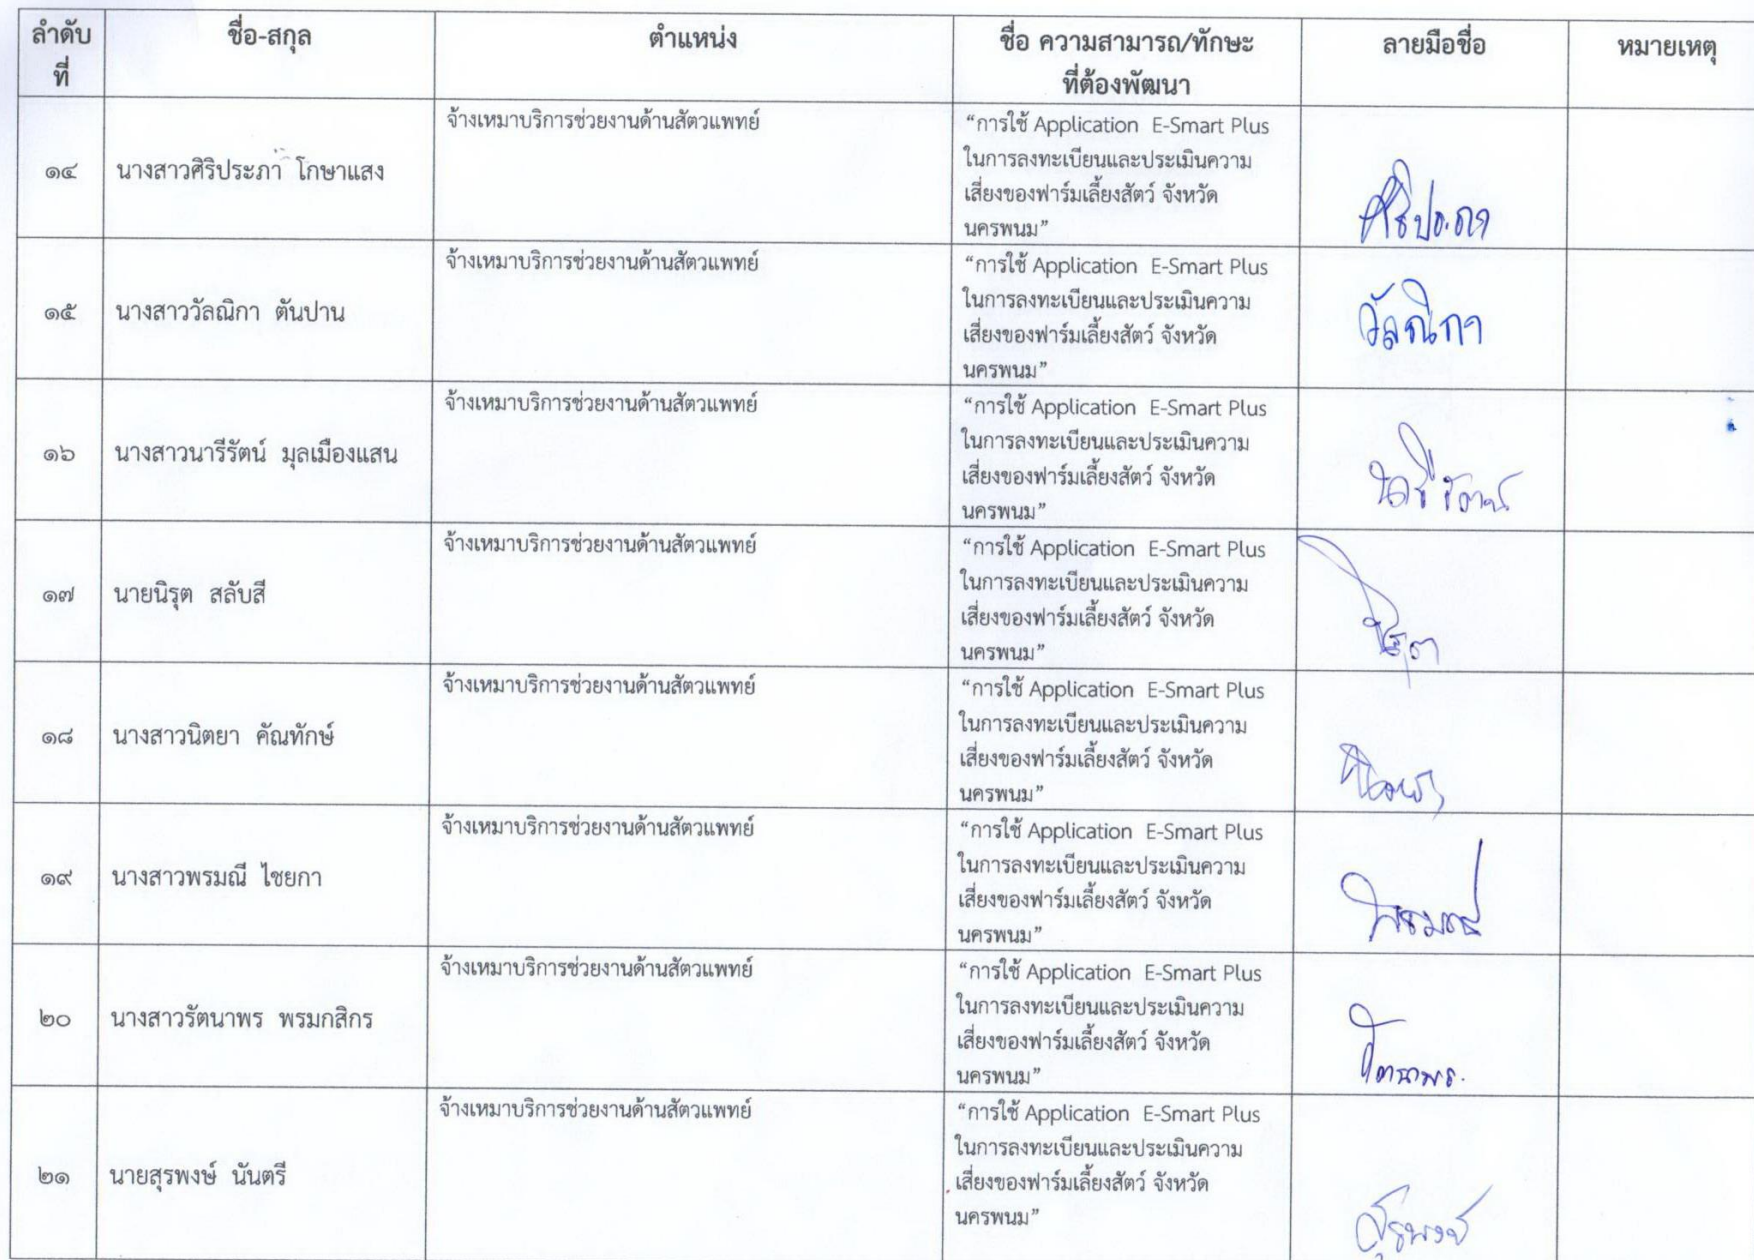 ลำดับ ชื่อ-สกุล ตำแหน่ง ชื่อ ความสามารถ/ทักษะ ลายมือชื่อ หมายเหตุ
ที่ ที่ต้องพัฒนา
๑๔ นางสาวศิริประภา โกษาแสง จ้างเหมาบริการช่วยงานด้านสัตวแพทย์ “การใช้ Application E-Smart Plus
ในการลงทะเบียนและประเมินความ
เสี่ยงของฟาร์มเลี้ยงสัตว์ จังหวัด
นครพนม” ศิริประภา
๑๕ นางสาววัลณิกา ตันปาน จ้างเหมาบริการช่วยงานด้านสัตวแพทย์ “การใช้ Application E-Smart Plus
ในการลงทะเบียนและประเมินความ
เสี่ยงของฟาร์มเลี้ยงสัตว์ จังหวัด
นครพนม” วัลณิกา
๑๖ นางสาวนารีรัตน์ มุลเมืองแสน จ้างเหมาบริการช่วยงานด้านสัตวแพทย์ “การใช้ Application E-Smart Plus
ในการลงทะเบียนและประเมินความ
เสี่ยงของฟาร์มเลี้ยงสัตว์ จังหวัด
นครพนม” นารีรัตน์
๑๗ นายนิรุต สลับสี จ้างเหมาบริการช่วยงานด้านสัตวแพทย์ “การใช้ Application E-Smart Plus
ในการลงทะเบียนและประเมินความ
เสี่ยงของฟาร์มเลี้ยงสัตว์ จังหวัด
นครพนม” นิรุต
๑๘ นางสาวนิตยา คัณทักษ์ จ้างเหมาบริการช่วยงานด้านสัตวแพทย์ “การใช้ Application E-Smart Plus
ในการลงทะเบียนและประเมินความ
เสี่ยงของฟาร์มเลี้ยงสัตว์ จังหวัด
นครพนม”
๑๙ นางสาวพรมณี ไชยกา จ้างเหมาบริการช่วยงานด้านสัตวแพทย์ “การใช้ Application E-Smart Plus
ในการลงทะเบียนและประเมินความ
เสี่ยงของฟาร์มเลี้ยงสัตว์ จังหวัด
นครพนม” พรมณี
๒๐ นางสาวรัตนาพร พรมกสิกร จ้างเหมาบริการช่วยงานด้านสัตวแพทย์ “การใช้ Application E-Smart Plus
ในการลงทะเบียนและประเมินความ
เสี่ยงของฟาร์มเลี้ยงสัตว์ จังหวัด
นครพนม” รัตนาพร.
๒๑ นายสุรพงษ์ นันตรี จ้างเหมาบริการช่วยงานด้านสัตวแพทย์ “การใช้ Application E-Smart Plus
ในการลงทะเบียนและประเมินความ
เสี่ยงของฟาร์มเลี้ยงสัตว์ จังหวัด
นครพนม” สุรพงษ์